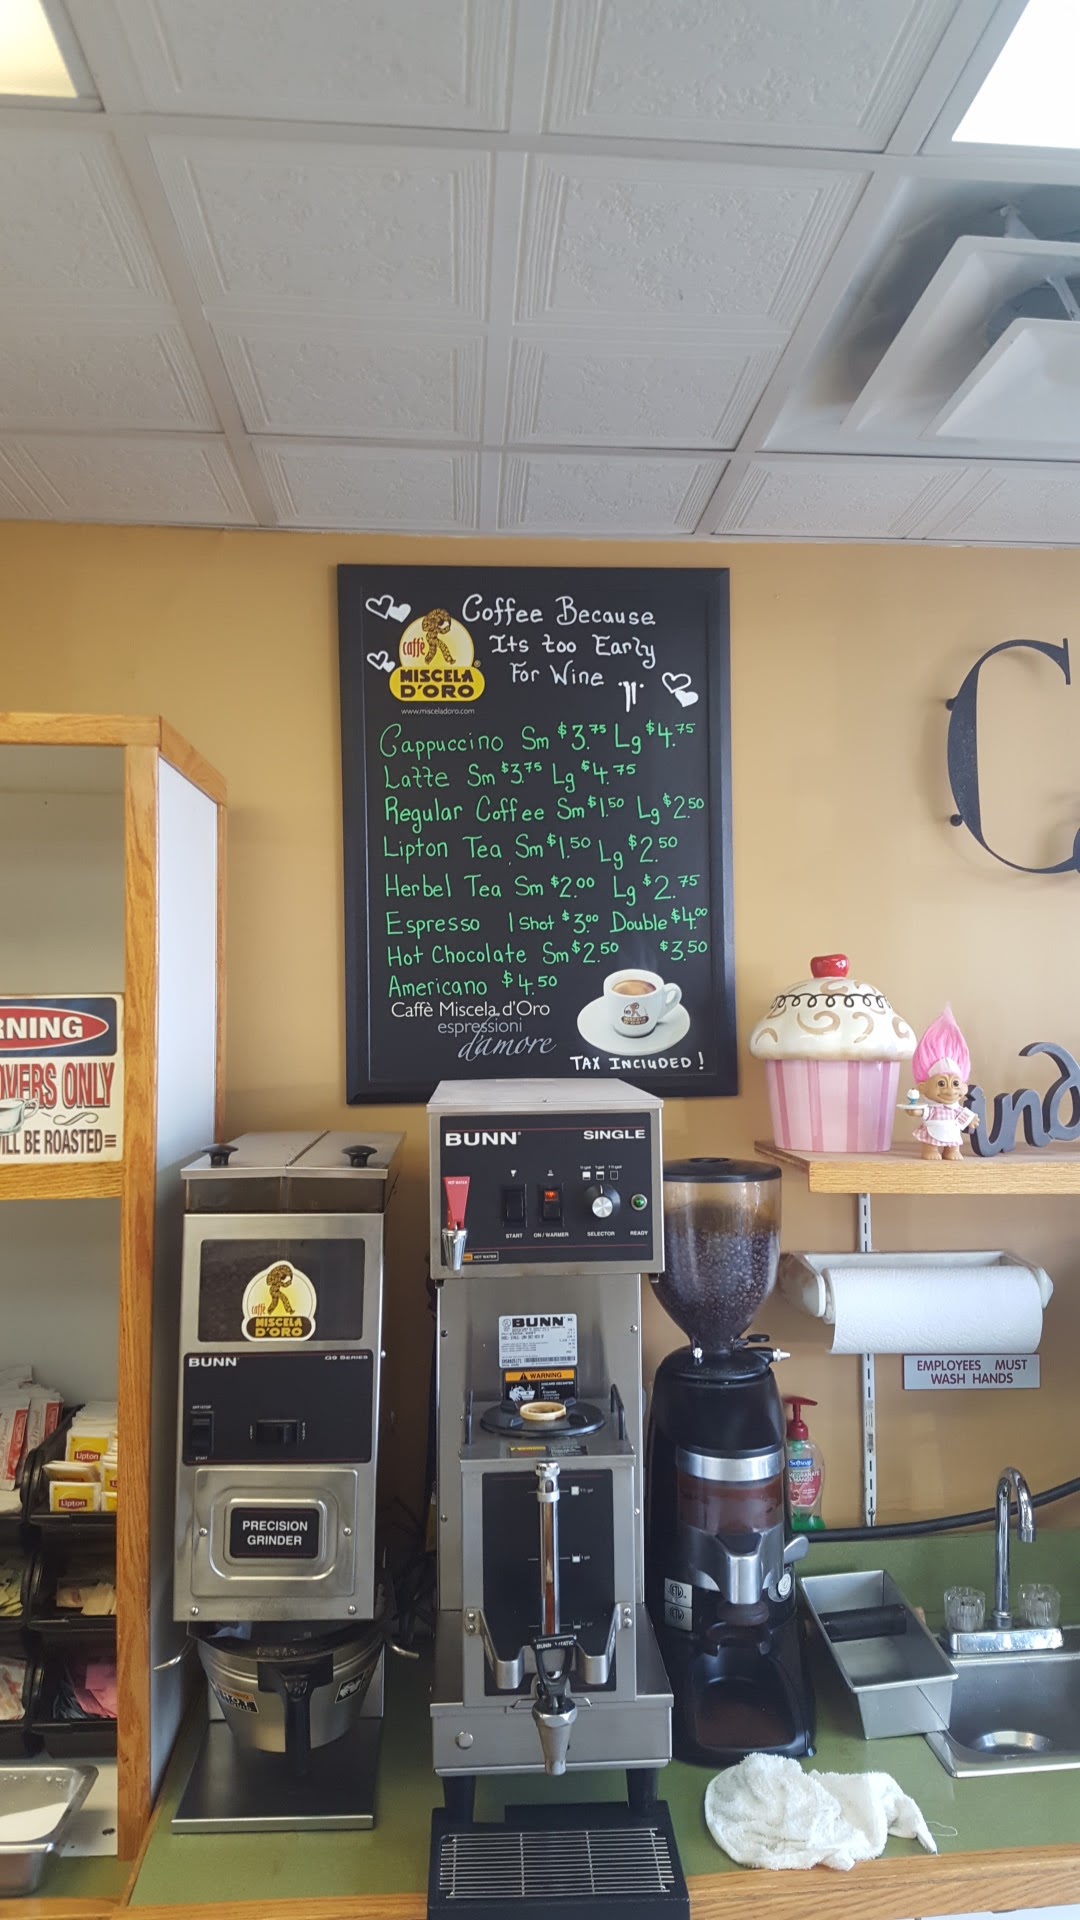 Coffee Because
Its too Early
For Wine
caffè
MISCELA
D'ORO
www.misceladoro.com
Cappuccino Sm $3.75 Lg $4.75
Latte Sm $3.75 Lg $4.75
Regular Coffee Sm $1.50 Lg $2.50
Lipton Tea Sm $1.50 Lg $2.50
Herbel Tea Sm $2.00 Lg $2.75
Espresso 1 Shot $3.00 Double $4.00
Hot Chocolate Sm $2.50 $3.50
Americano $4.50
Caffè Miscela d'Oro
espressioni
d'amore
TAX INCLUDED!
RNING
OVERS ONLY
ILL BE ROASTED
BUNN SINGLE
HOT WATER
START ON/WARMER SELECTOR READY
HOT WATER
BUNN
WARNING
caffè
MISCELA
D'ORO
BUNN G9 SERIES
START
PRECISION
GRINDER
Lipton
Lipton
C
und
EMPLOYEES MUST
WASH HANDS
Softsoap